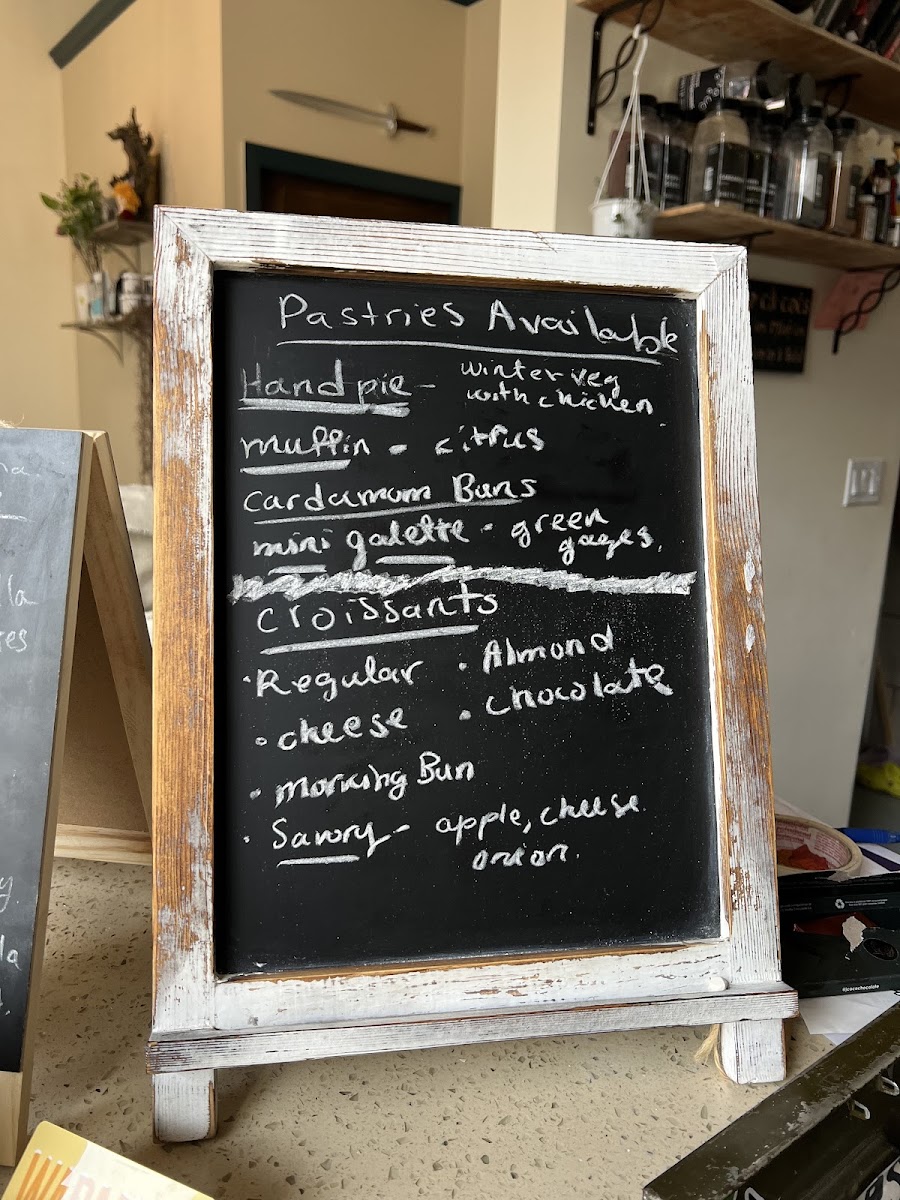 Pastries Available
Hand pie - winter veg
with chicken
muffin - citrus
cardamom Buns
mini galette - green
gages.
croissants
• Regular • Almond
• cheese • chocolate
• morning Bun
• Savory - apple, cheese
onion.
@jcocochocolate